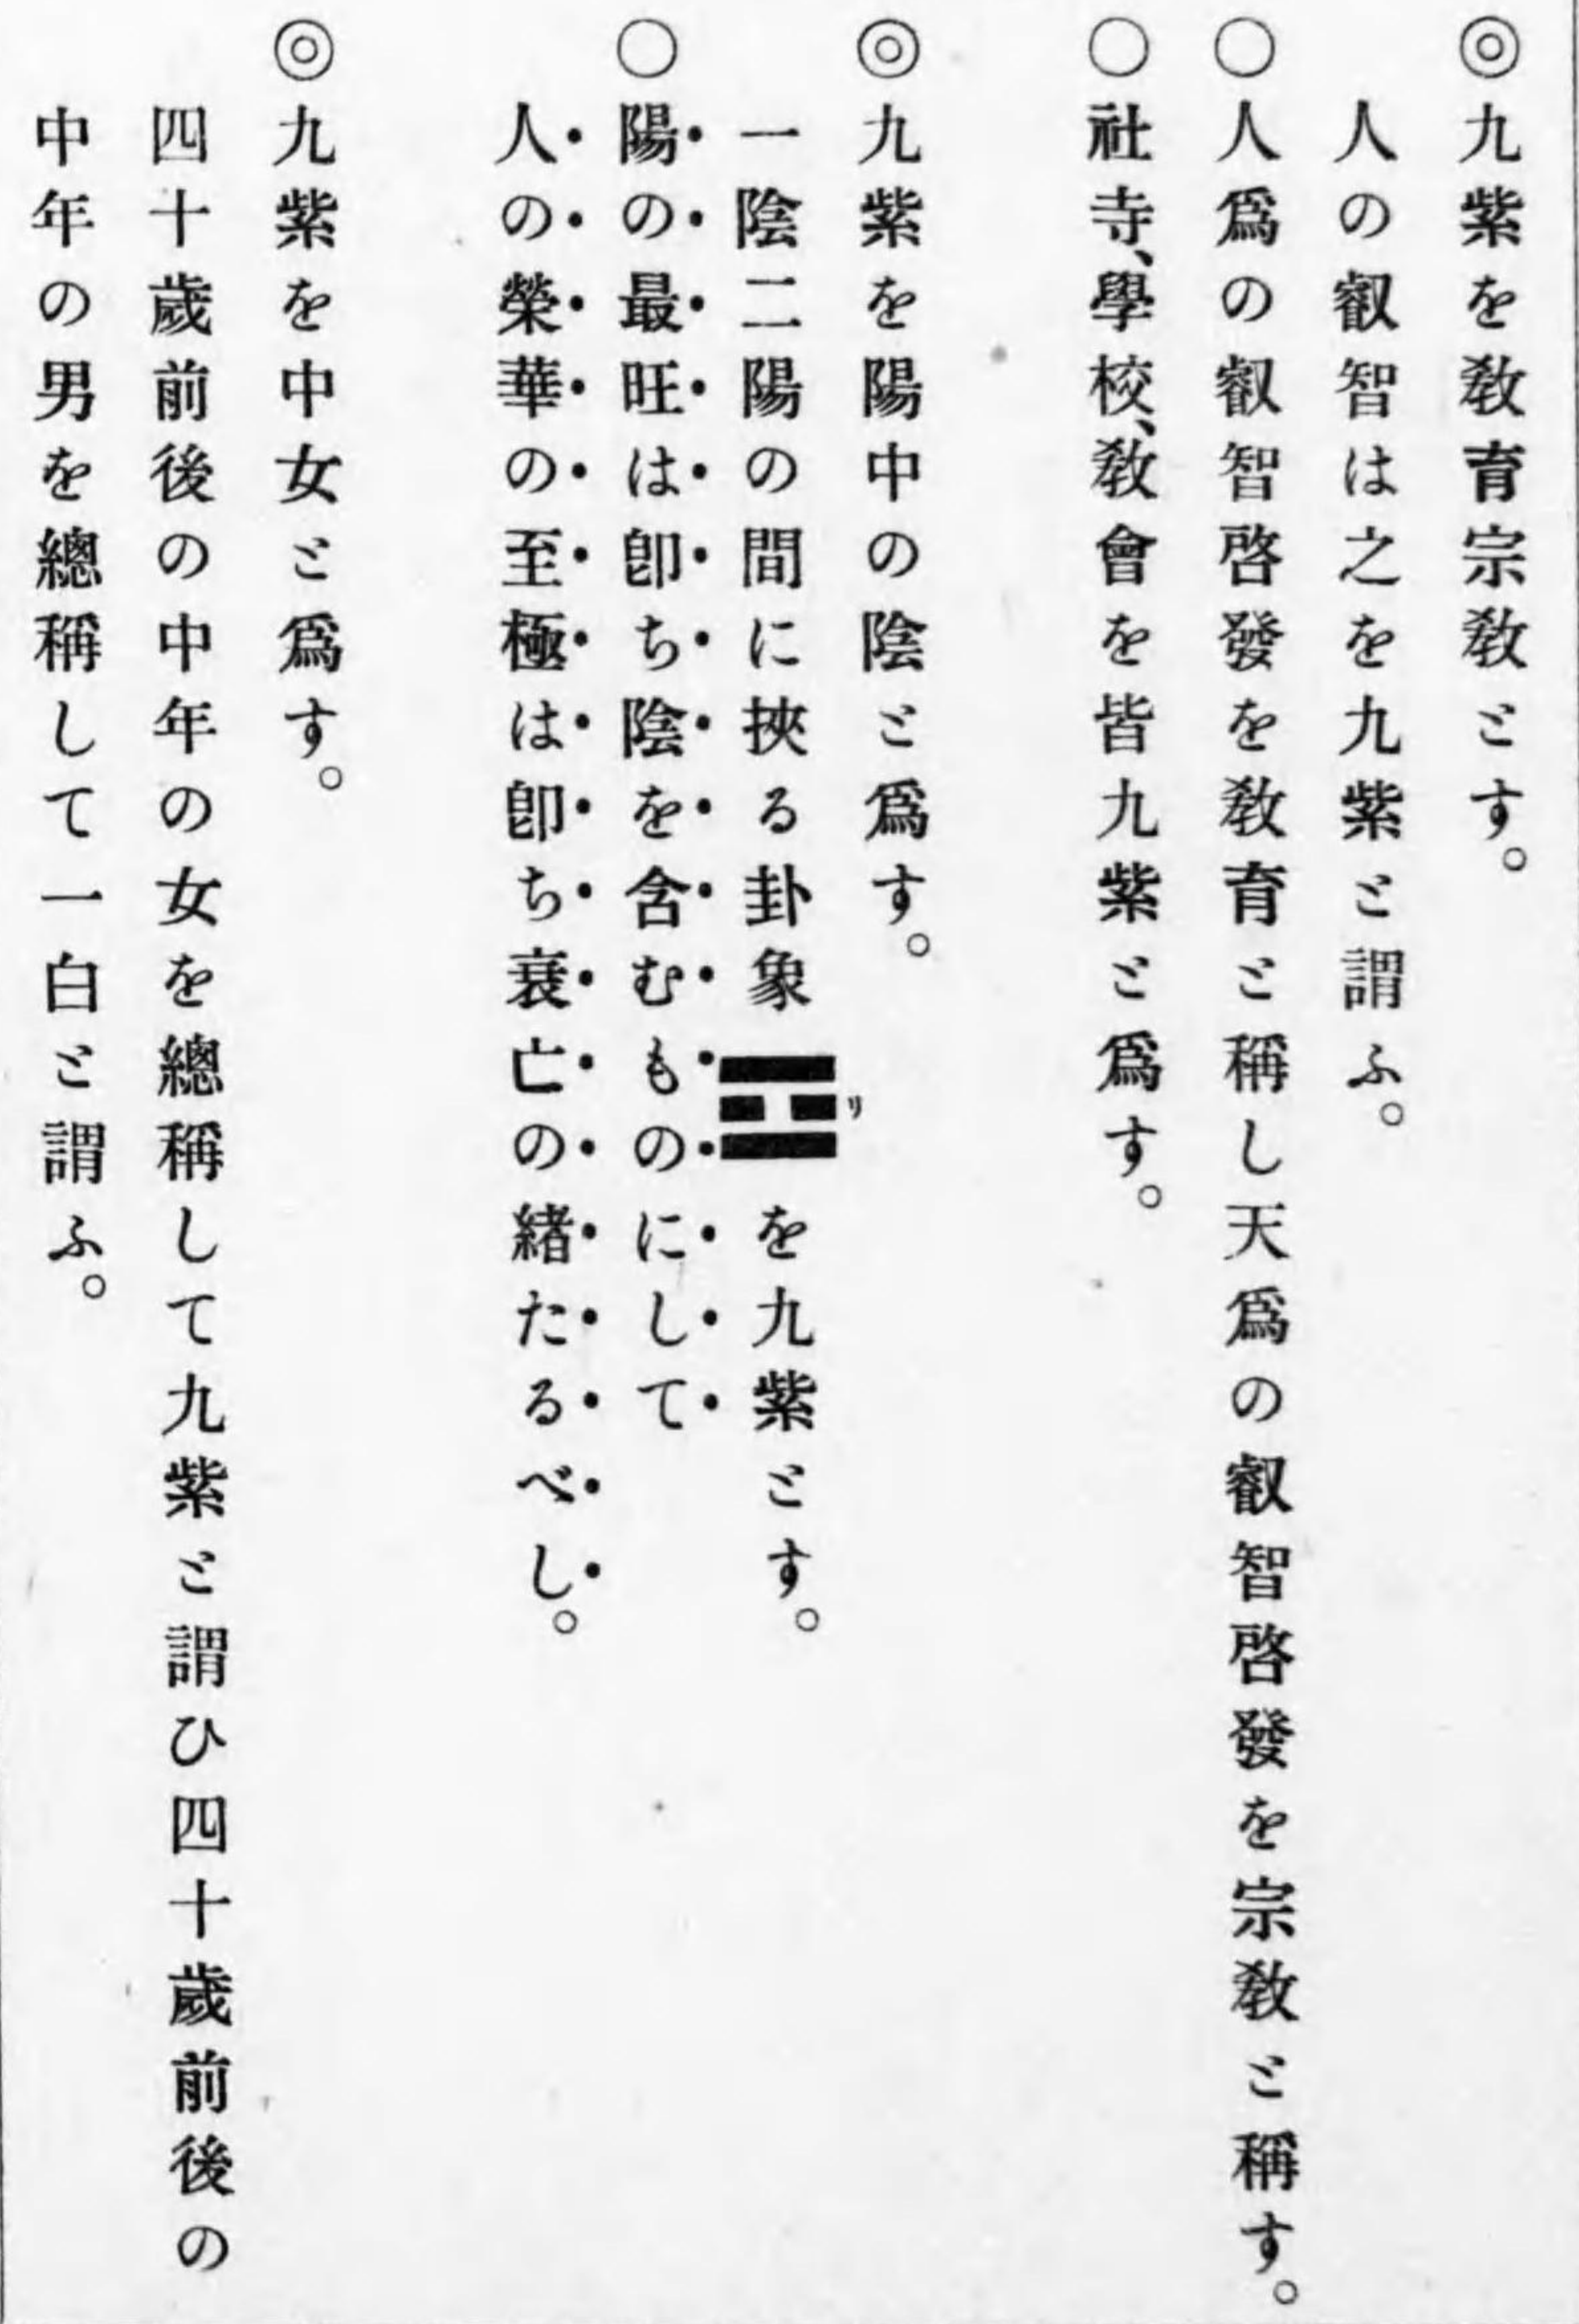 ◎九紫を敎育宗敎とす。
人の叡智は之を九紫と謂ふ。
○人爲の叡智啓發を敎育と稱し天爲の叡智啓發を宗敎と稱す。
○社寺、學校、敎會を皆九紫と爲す。
◎九紫を陽中の陰と爲す。
一陰二陽の間に挾る卦象☲リを九紫とす。
○陽の最旺は卽ち陰を含むものにして
人の榮華の至極は卽ち衰亡の緖たるべし。
◎九紫を中女と爲す。
四十歲前後の中年の女を總稱して九紫と謂ひ四十歲前後の
中年の男を總稱して一白と謂ふ。